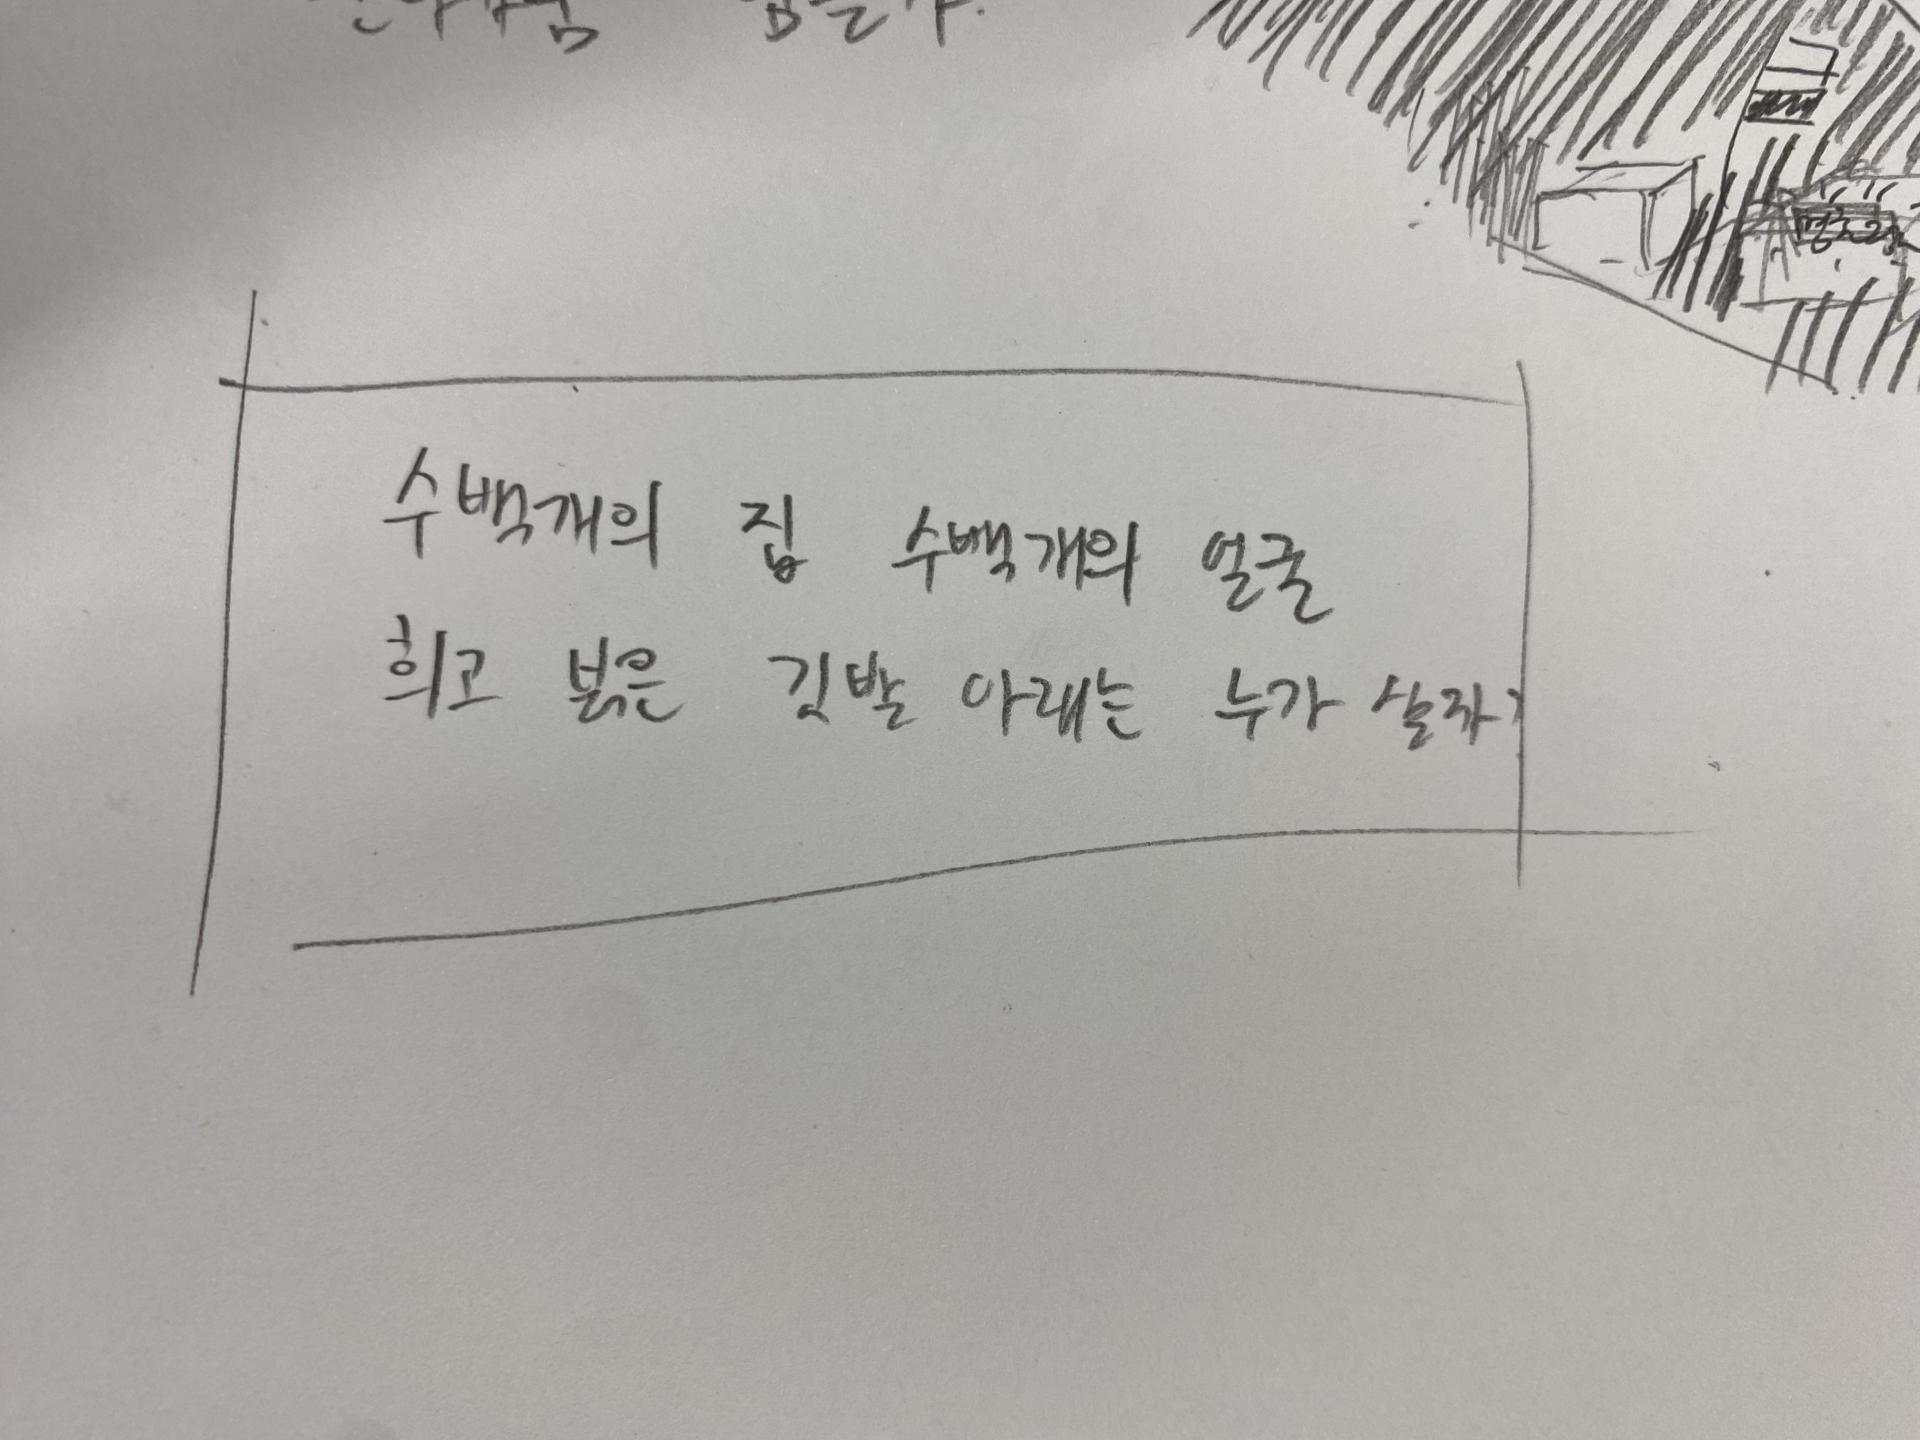 수백개의 집 수백개의 얼굴
희고 붉은 깃발 아래는 누가 살까?